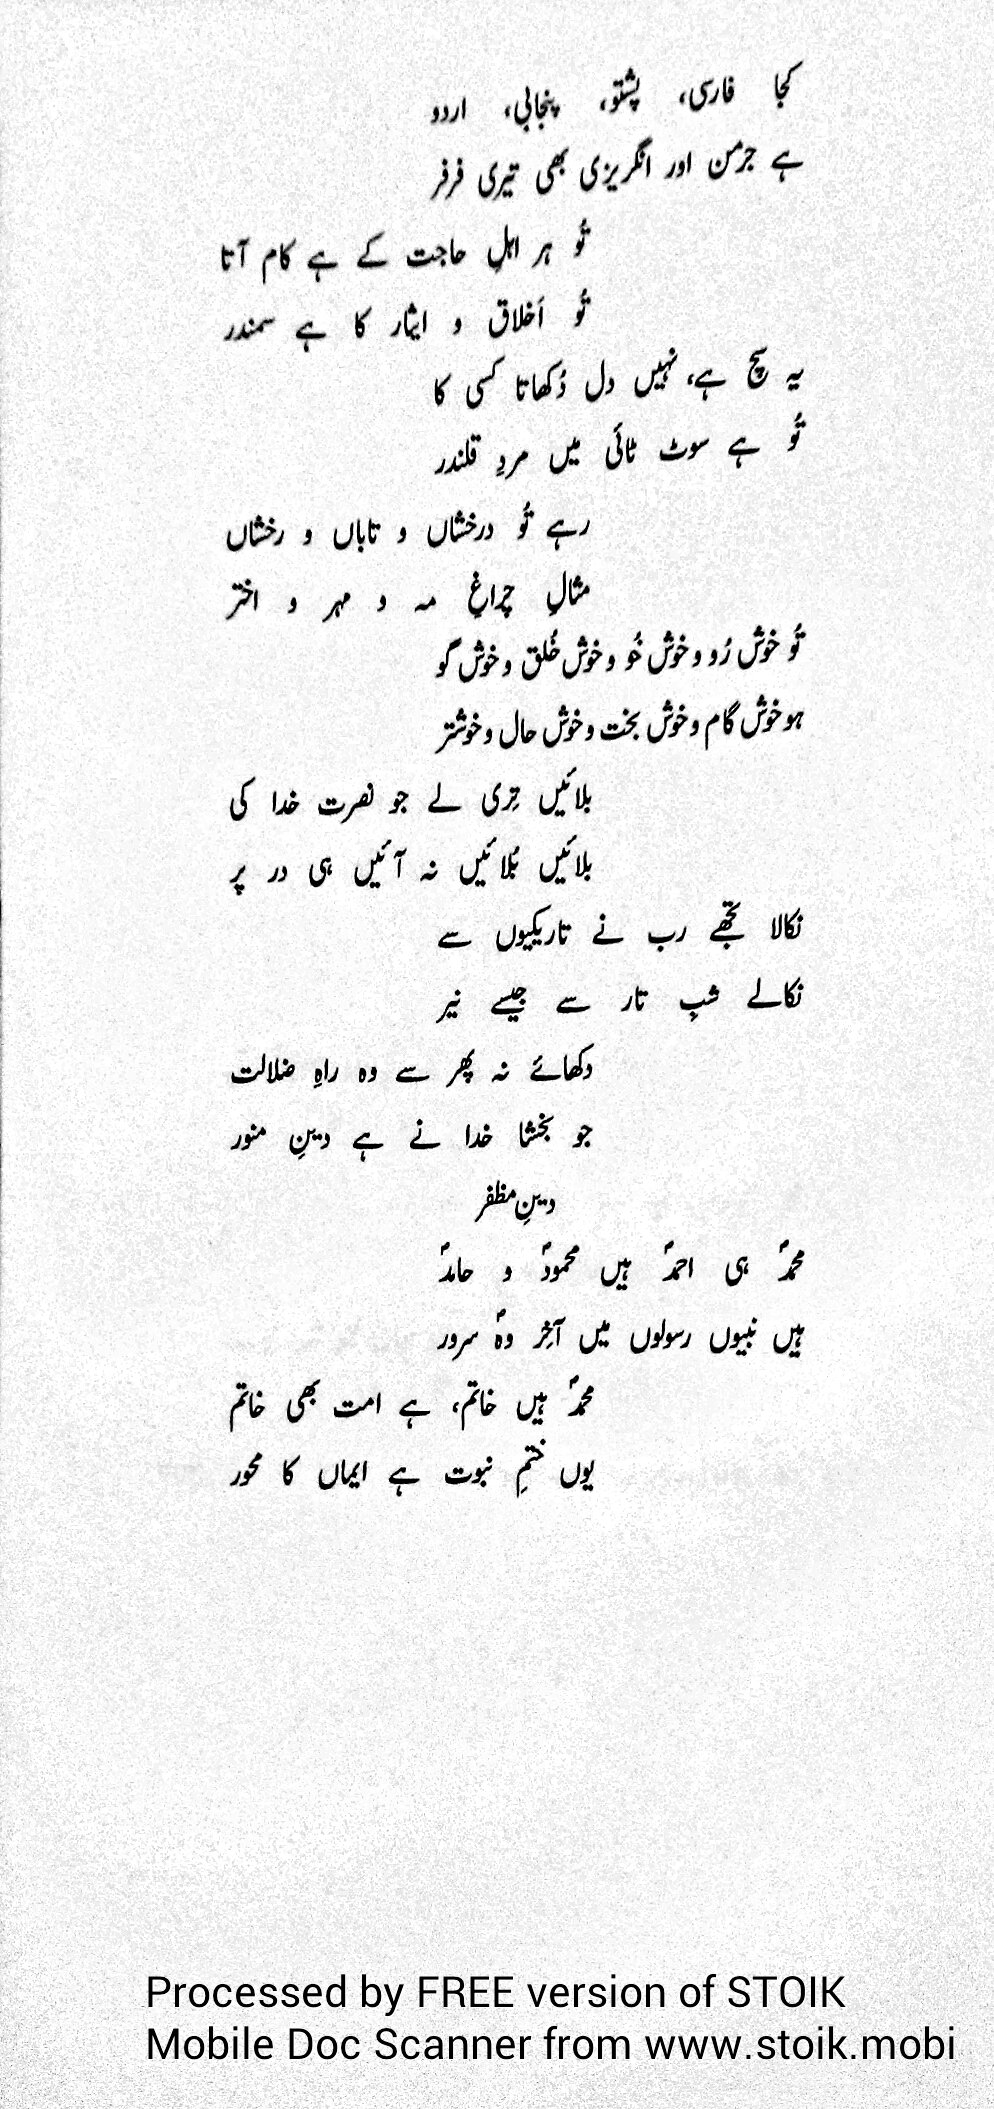 کجا فارسی، پشتو، پنجابی، اردو
ہے جرمن اور انگریزی بھی تیری فرفر
تُو ہر اہلِ حاجت کے ہے کام آتا
تُو اَخلاق و ایثار کا ہے سمندر
یہ سچ ہے، نہیں دل دُکھاتا کسی کا
تُو ہے سوٹ ٹائی میں مردِ قلندر
رہے تُو درخشاں و تاباں و رخشاں
مثالِ چراغِ مہ و مہر و اختر
تُو خوش رُو و خوش خُو و خوش خُلق و خوش گو
ہو خوش گام و خوش بخت و خوش حال و خوشتر
بلائیں تِری لے جو نصرت خدا کی
بلائیں بُلائیں نہ آئیں ہی در پر
نکالا تجھے رب نے تاریکیوں سے
نکالے شبِ تار سے جیسے نیر
دکھائے نہ پھر سے وہ راہِ ضلالت
جو بخشا خدا نے ہے دینِ منور
دینِ مظفر
محمدؐ ہی احمدؐ ہیں محمودؐ و حامدؐ
ہیں نبیوں رسولوں میں آخِر وہؐ سرور
محمدؐ ہیں خاتم، ہے امت بھی خاتم
یوں ختمِ نبوت ہے ایماں کا محور
Processed by FREE version of STOIK
Mobile Doc Scanner from www.stoik.mobi